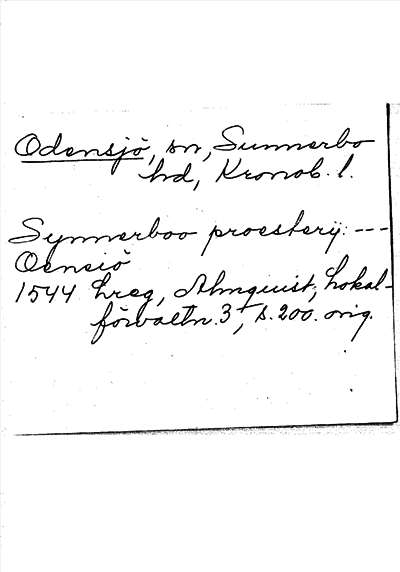 Odensjö, sn, Sunnerbo
hd, Kronob. l.
Synnerboo proesterij: ---
Oensiö
1544 Lreg, Almquist, Lokal-
förvaltn. 3, s. 200. orig.